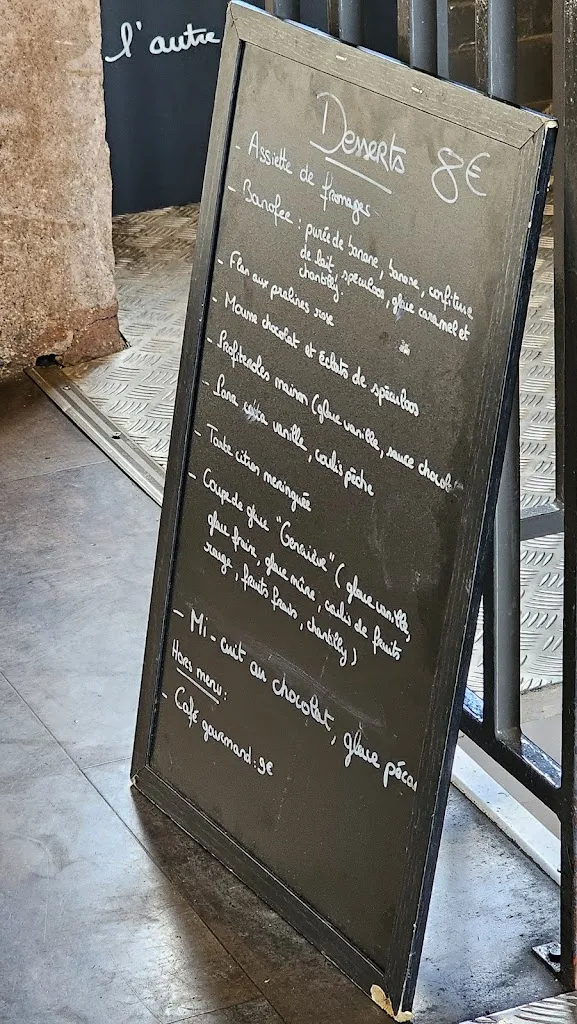 l'autre
Desserts 8€
- Assiette de fromages
- Banofee : purée de banane, banane, confiture
de lait, spéculoos, glace caramel et
chantilly.
- Flan aux pralines rose
- Mousse chocolat et éclats de spéculoos
- Profiteroles maison (glace vanille, sauce chocolat
- Pana cotta vanille, coulis pêche
- Tarte citron meringuée
- Coupe de glace "Genaiève" (glace vanille,
glace fraise, glace mûre, coulis de fruits
rouge, fruits frais, chantilly)
- Mi-cuit au chocolat, glace pécan
Hors menu :
- Café gourmand : 9€